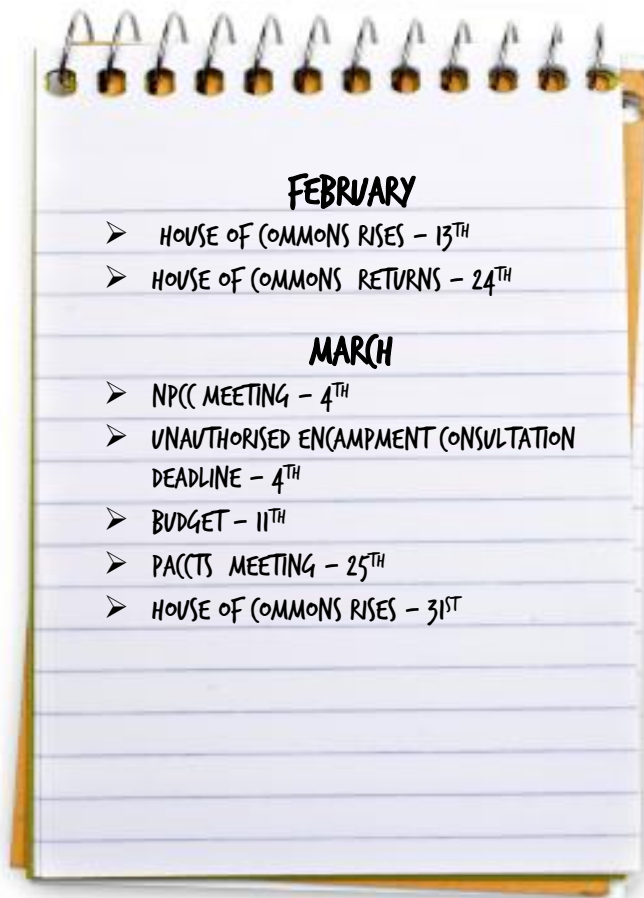 FEBRUARY
➢ HOUSE OF COMMONS RISES – 13TH
➢ HOUSE OF COMMONS RETURNS – 24TH
MARCH
➢ NPCC MEETING – 4TH
➢ UNAUTHORISED ENCAMPMENT CONSULTATION
DEADLINE – 4TH
➢ BUDGET – 11TH
➢ PACCTS MEETING – 25TH
➢ HOUSE OF COMMONS RISES – 31ST